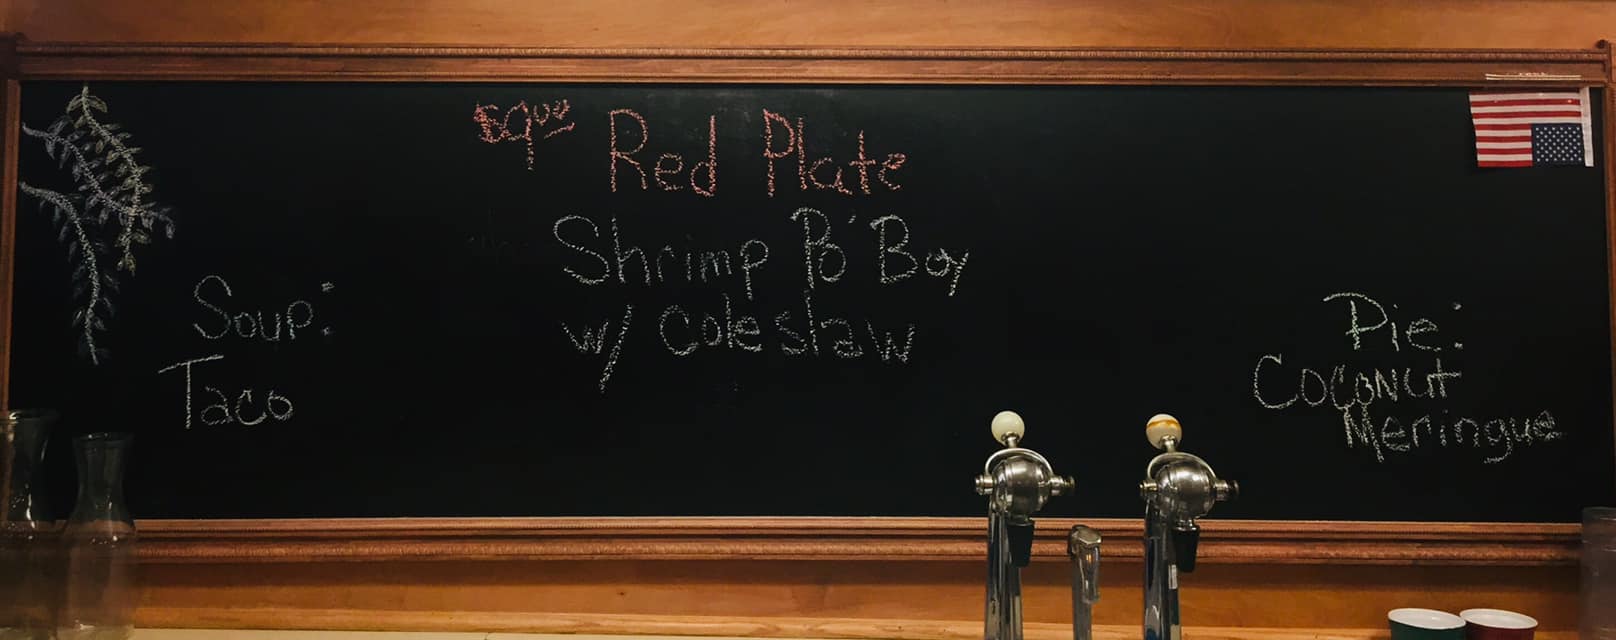 $9.00 Red Plate
Shrimp Po' Boy
w/ Coleslaw
Soup:
Taco
Pie:
Coconut
Meringue